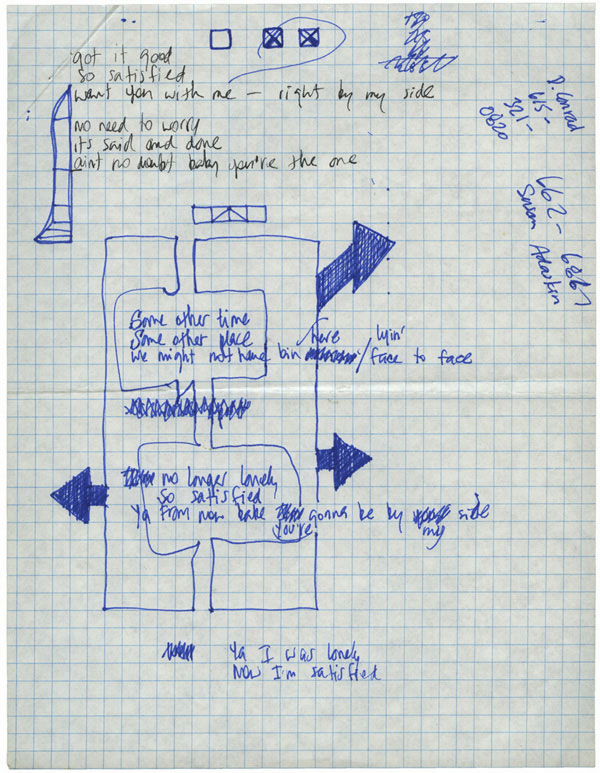 got it good
so satisfied
want you with me – right by my side
no need to worry
its said and done
aint no doubt baby you're the one
D. Conrad
615-
321-
0820
662-6867
Some other time
Some other place
here lyin'
we might not have bin / face to face
no longer lonely
so satisfied
ya from now babe gonna be by side
you're my
Ya I was lonely
Now I'm satisfied